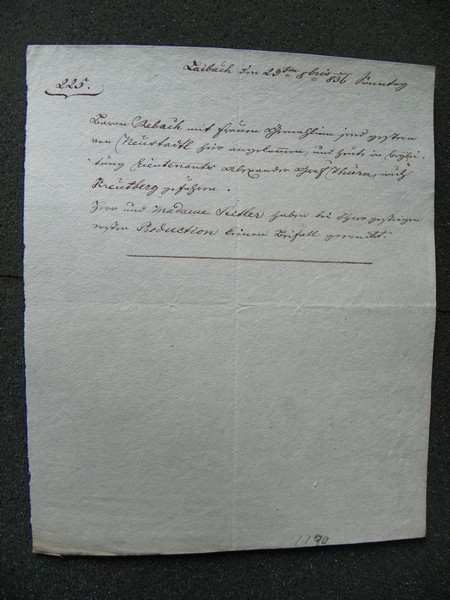 Laibach den 23ten 8bris 836 Sonntag
225.
Baron Rebach mit Frauen Gemahlinn sind gestern
von Neustadtl hier angekommen, und heute in Beglei-
tung Lieutenants Alexander Graf Thurn, nach
Kreutberg gefahren.
Herr und Madame Sutler haben bei ihrer gestrigen
ersten Production keinen Beifall geerntet.
2290